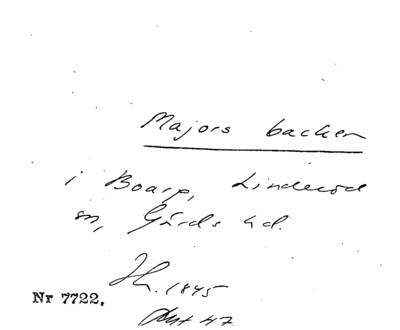 Majors backen
i Boarp, Linderöd
sn, Gärds hd.
Jh. 1845
Nr 7722.
47